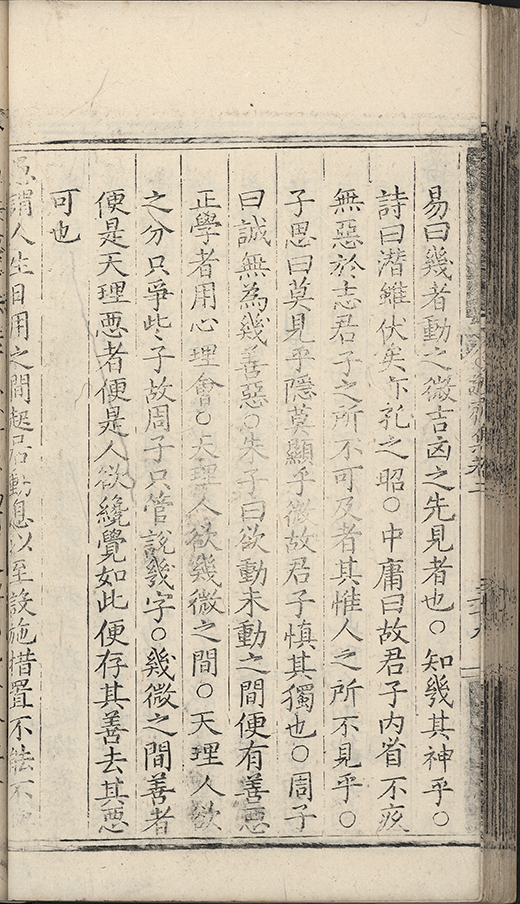 易曰幾者動之微吉凶之先見者也○知幾其神乎○
詩曰潛雖伏矣亦孔之昭○中庸曰故君子内省不疚
無惡於志君子之所不可及者其惟人之所不見乎○
子思曰莫見乎隱莫顯乎微故君子慎其獨也○周子
曰誠無為幾善惡○朱子曰欲動未動之間便有善惡
正學者用心理會○天理人欲幾微之間○天理人欲
之分只爭此子故周子只管說幾字○幾微之間善者
便是天理惡者便是人欲纔覺如此便存其善去其惡
可也
謂人生日用之間起居動息以至設施措置不能不